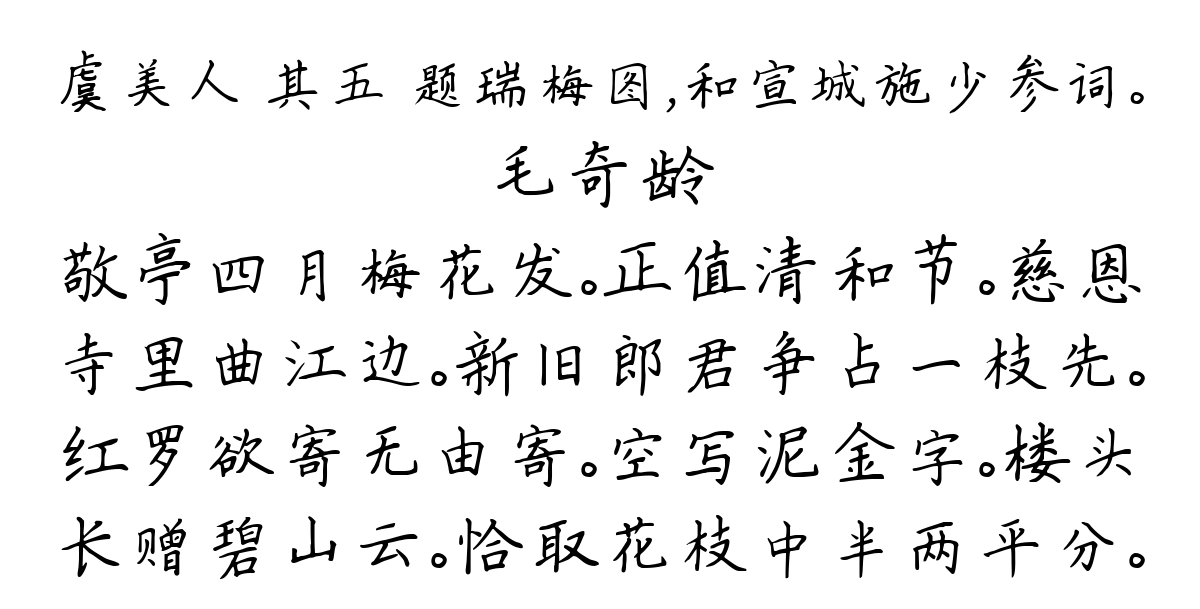 虞美人 其五 题瑞梅图,和宣城施少参词。
毛奇龄
敬亭四月梅花发。正值清和节。慈恩
寺里曲江边。新旧郎君争占一枝先。
红罗欲寄无由寄。空写泥金字。楼头
长赠碧山云。恰取花枝中半两平分。